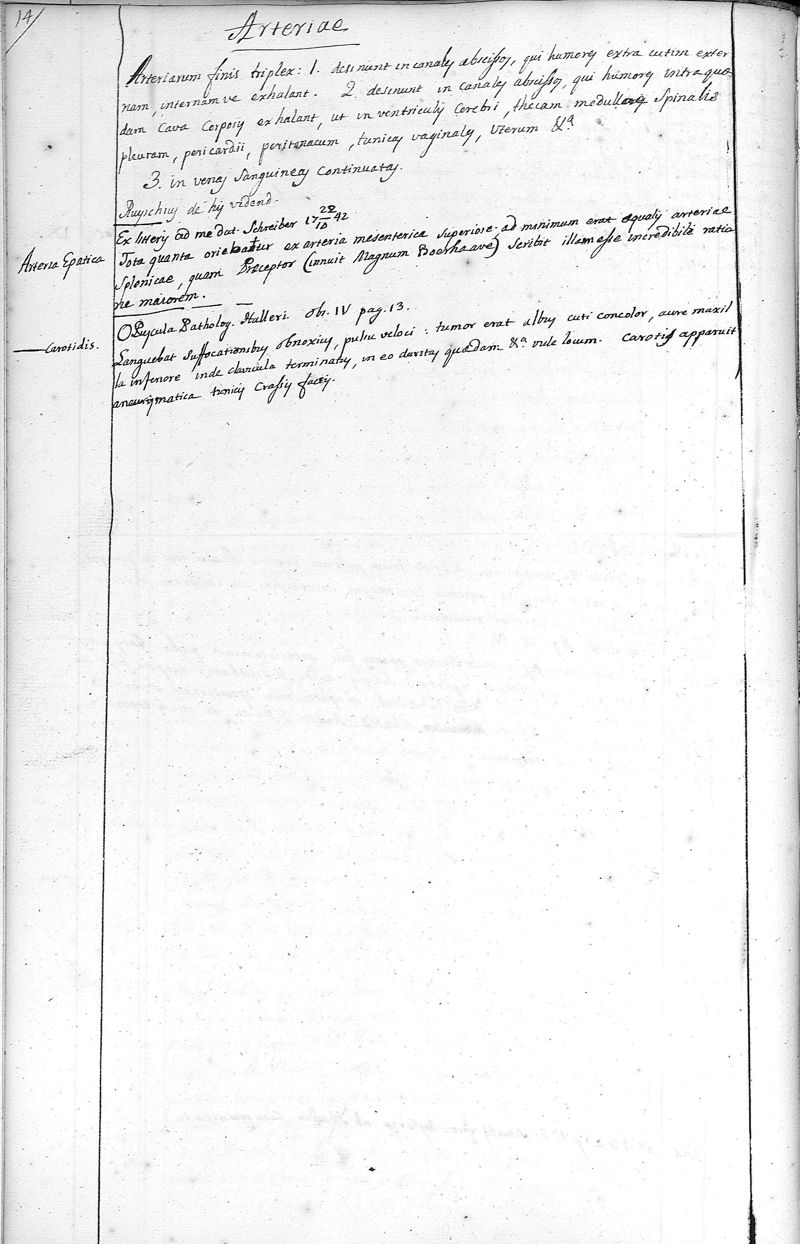 14/
Arteriae
Arteriarum finis triplex: 1. desinunt in canales abscissos, qui humores extra cutim exter
nam, internamve exhalant. 2. desinunt in canales abscissos, qui humores intra quae
dam Cava Corporis exhalant, ut in ventriculis Cerebri, thecam medullae Spinalis
pleuram, pericardii, peritonaeum, tunicas vaginales, Uterum &a
3. in venas Sanguineas Continuatas.
Ruyschius de his vidend.
Ex litteris ad me dat. Schreiber 17 22/10 42
Arteria Epatica
Tota quanta oriebatur ex arteria mesenterica superiore; ad minimum erat equalis arteriae
Splenicae, quam Praeceptor (innuit Magnum Boerhaave) scribit illam esse incredibili ratio
ne maiorem.
— Carotidis.
Opuscula Patholog. Halleri. obs. IV pag. 13.
Languebat Suffocationibus obnoxius, pulsu veloci: tumor erat albus cuti concolor, aure maxil
la inferiore inde clavicula terminatus, in eo durities quaedam &a vide locum. Carotis apparuit
aneurismatica tunicis Crassis factis.